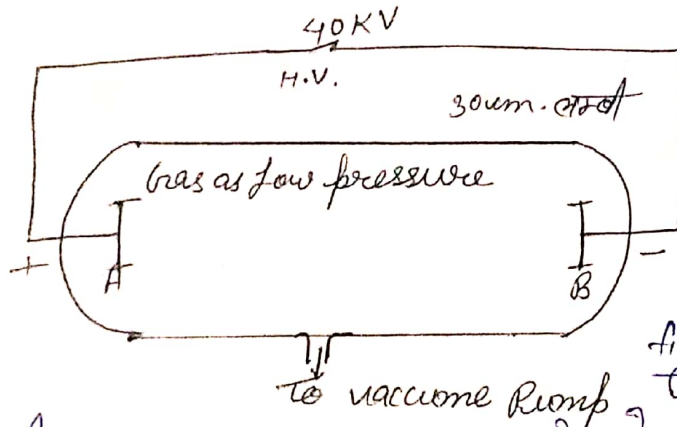 40KV
H.V.
30cm. लम्बी
Gas as Low pressure
+
A
B
-
To vaccume Pump